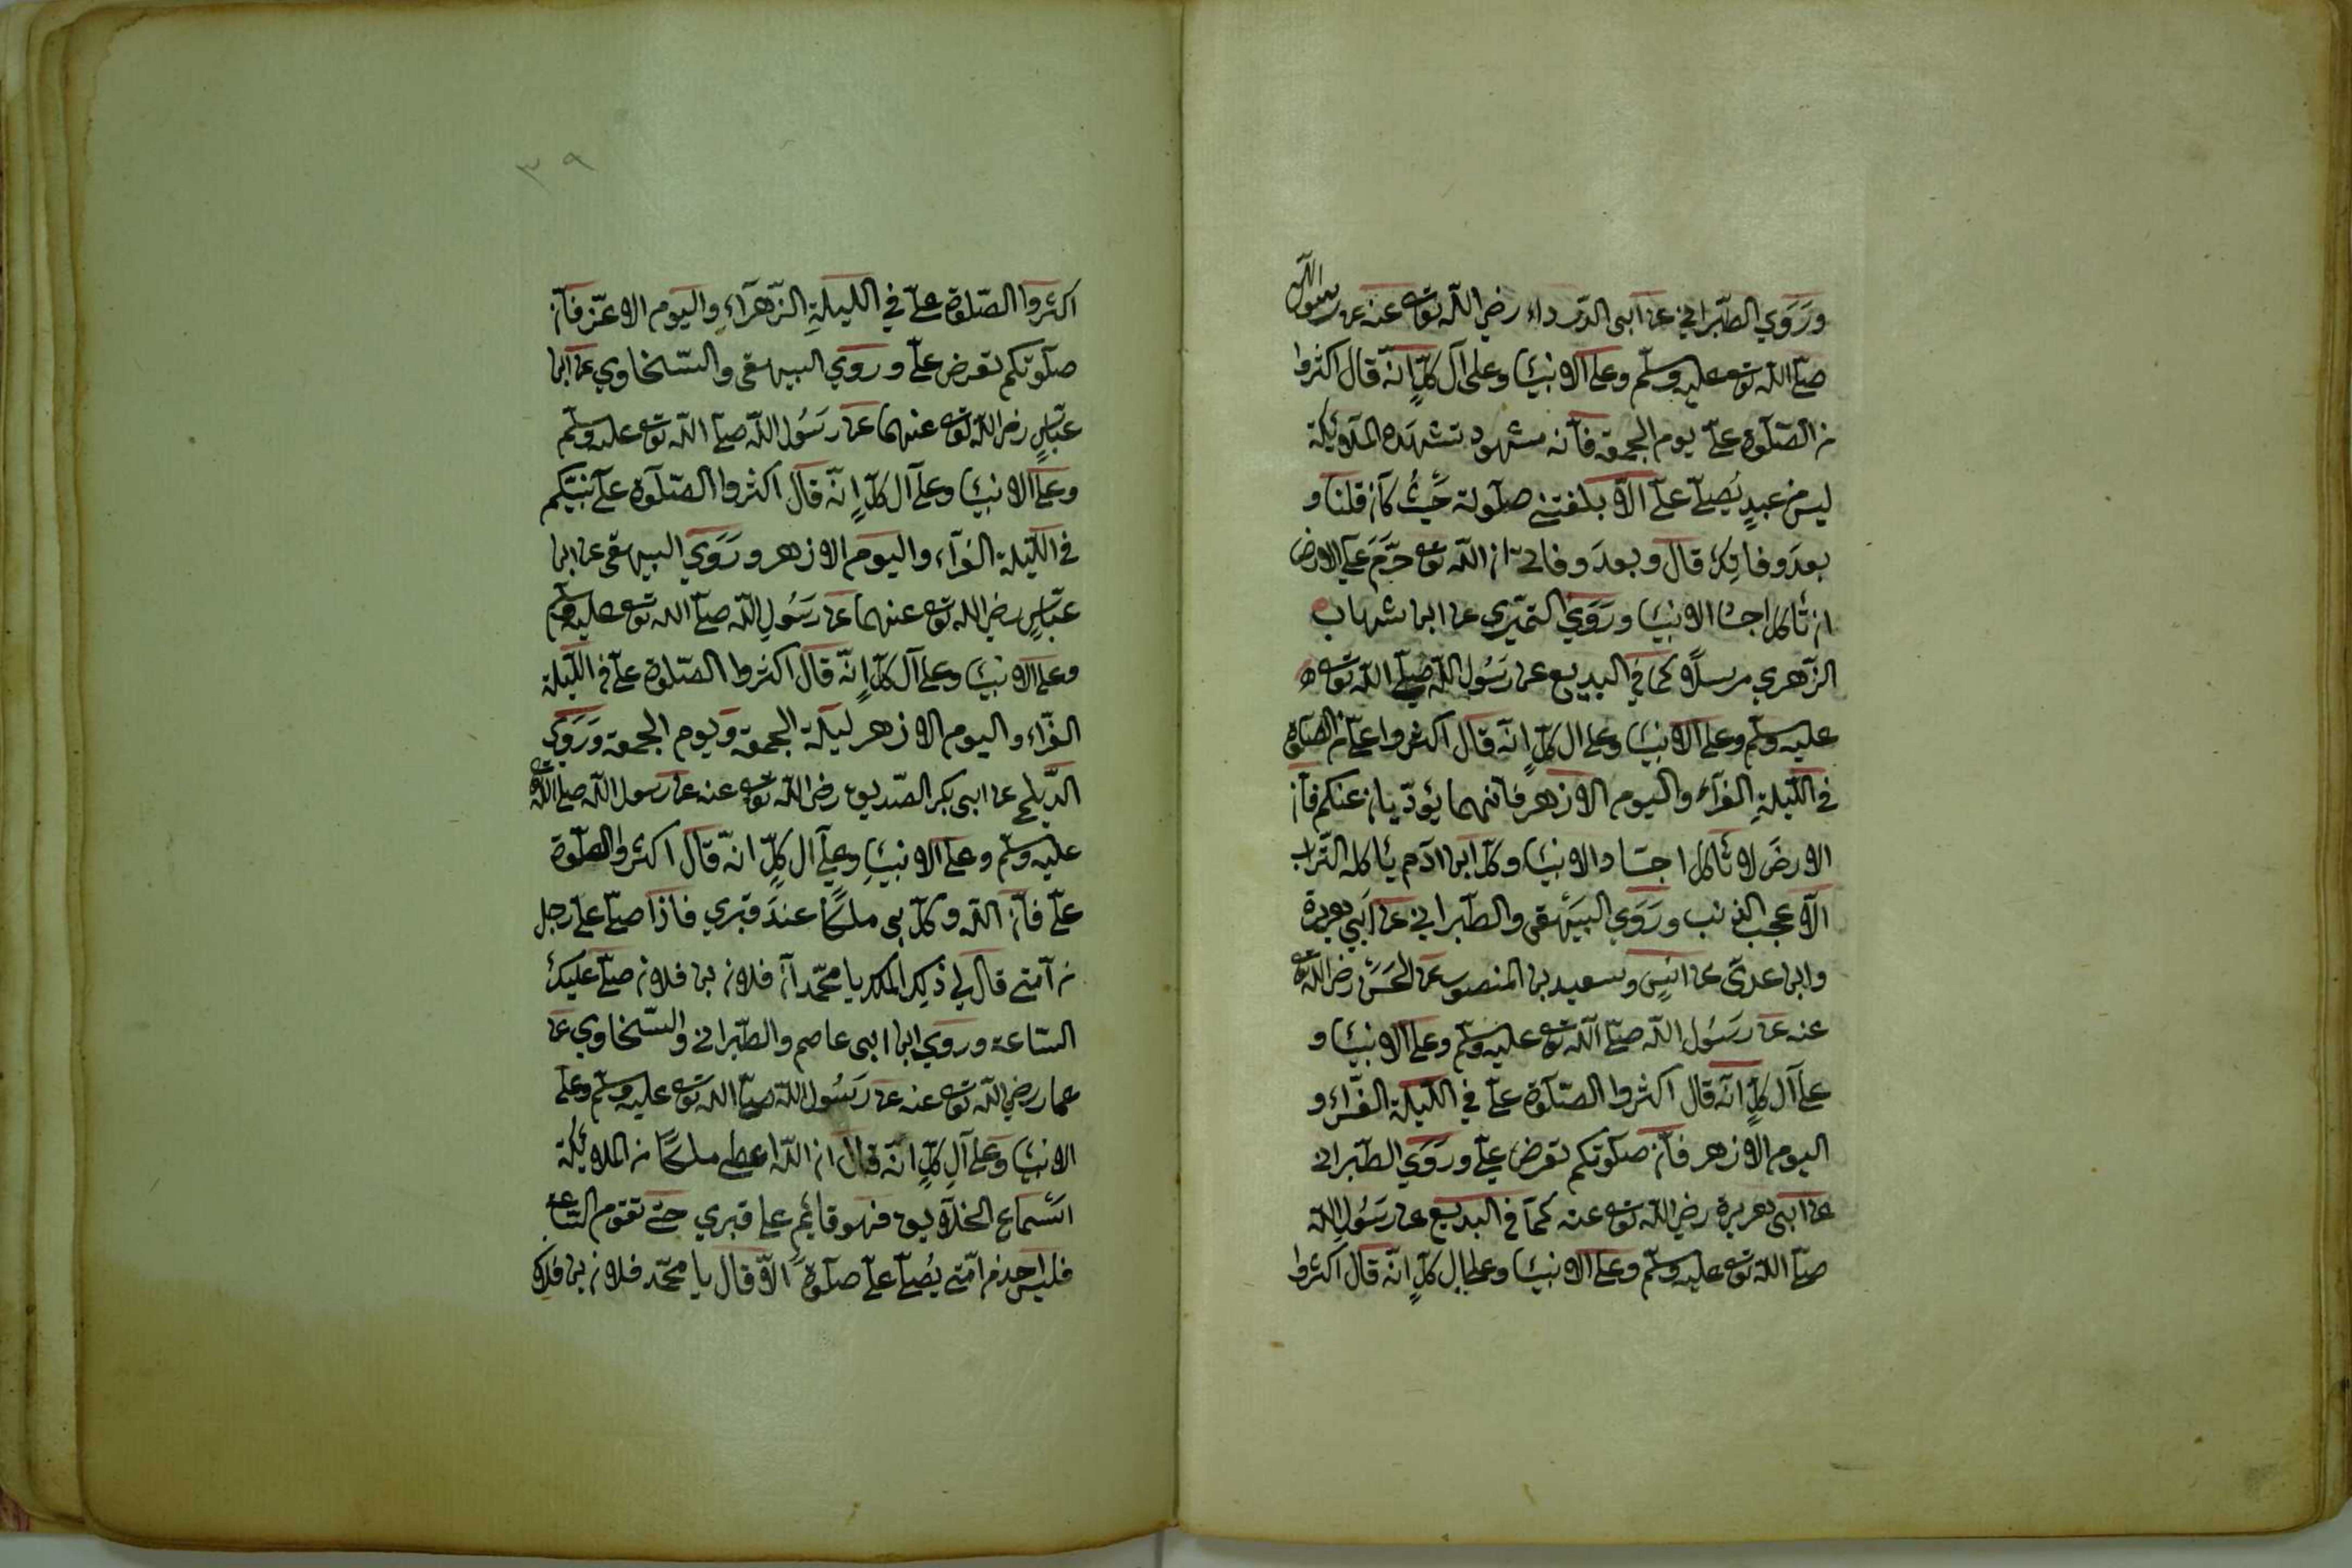 وَرَوَي الطّبراني عن ابى الدّرداء رضي اللّه تعه عنه عن رسول اللّه
صلّى اللّه تعه عليه وسلّم وعلى الانبيَا وعلى آل كلٍّ انّه قال اكثروا
من الصّلوة علىّ يوم الجمعة فانّه مشهود تشهَده الملائكة
ليس من عبدٍ يُصلّى علىّ الّا بلغتنى صلوته حَيثُ كان قلنا و
بعدَ وفاتِك قال وبعدَ وفاتى انّ اللّه تعه حَرَّمَ على الارض
ان تأكل اجسَا الانبيَا ورَوَي النّميري عن ابن شهاب
الزّهري مرسلًا كما في البديع عن رَسُول اللّه صلّى اللّه تعه
عليه وسلّم وعلى الانبيَا وعلى ال كلٍّ انّه قال اكثروا علىّ من الصّلوة
في اللّيلةِ الغرّآء واليوم الازهر فانّهما يُؤدّيان عنكم فانّ
الارضَ لا تأكل اجسَاد الانبيَا وكلّ ابن ادَم يأكله التّراب
الّا عجب الذنب ورَوَي البَيهَقى والطّبراني عن اَبي هريرة
وابن عدىّ عن انسٍ وسعيد بن المنصور عن الحَسَن رضى اللّه تعه
عنه عن رَسُول اللّه صلّى اللّه تعه عليه وسلّم وعلى الانبيَا و
على آل كلٍّ انّه قال اكثروا الصّلوة علىّ في اللّيلة الغرّاء و
اليوم الازهر فانّ صلوتكم تعرض علىّ ورَوَي الطّبرانى
عن ابى هريرة رضي اللّه تعه عنه كما في البديع عن رَسُول اللّه
صلّى اللّه تعه عليه وسلّم وعلى الانبيَا وعلى ال كلٍّ انّه قال اكثروا
٣٩
اكثروا الصّلوة علىّ في الليلةِ الزّهرَآءِ واليوم الاغرّ فانّ
صلوتكم تعرض علىّ وروي البيهقى والسّخاوي عن ابن
عبّاسٍ رضى اللّه تعه عنهما عن رَسُول اللّه صلّى اللّه تعه عليه وسلّم
وعلى الانبيَا وعلى آل كلٍّ انّه قال اكثروا الصّلوة على نبيّكم
في اللّيلة الغرّآء واليوم الازهر ورَوَي البيهقى عن ابن
عبّاسٍ رضى اللّه تعه عنهما عن رَسُولِ اللّه صلّى اللّه تعه عليه وسلّم
وعلى الانبيَا وعلى آل كلٍّ انّه قال اكثروا الصّلوة علىّ في اللّيلة
الغرّاء واليوم الازهر ليلة الجمعة ويوم الجمعة وَرَوَي
الدّيلمى عن ابى بكر الصّديق رضى اللّه تعه عنه عن رسول اللّه صلّى اللّه تعه
عليه وسلّم وعلى الانبيَاِ وعلى آل كلٍّ انّه قال اكثروا الصّلوة
علىّ فانّ اللّه وكّل بى ملكًا عندَ قبري فاذا صلّى علىّ رجل
من اُمّتى قال لي ذلك الملك يا محمّد انّ فلان بن فلان صلّى عليك
السّاعة وروي ابن ابى عاصم والطّبرانى والسّخاوي عن
عمار رضي اللّه تعه عنه عن رَسُول اللّه صلّى اللّه تعه عليه وسلّم وعلى
الانبيَا وعلى آلِ كلٍّ انّه قال انّ اللّه اعطى ملكًا من الملائكة
اسْماع الخلايق فهو قائم على قبري حتّى تقوم السّاعة
فليس احد من امّتى يُصلّى علىّ صلوةً الّا قال يا محمّد فلان بن فلان